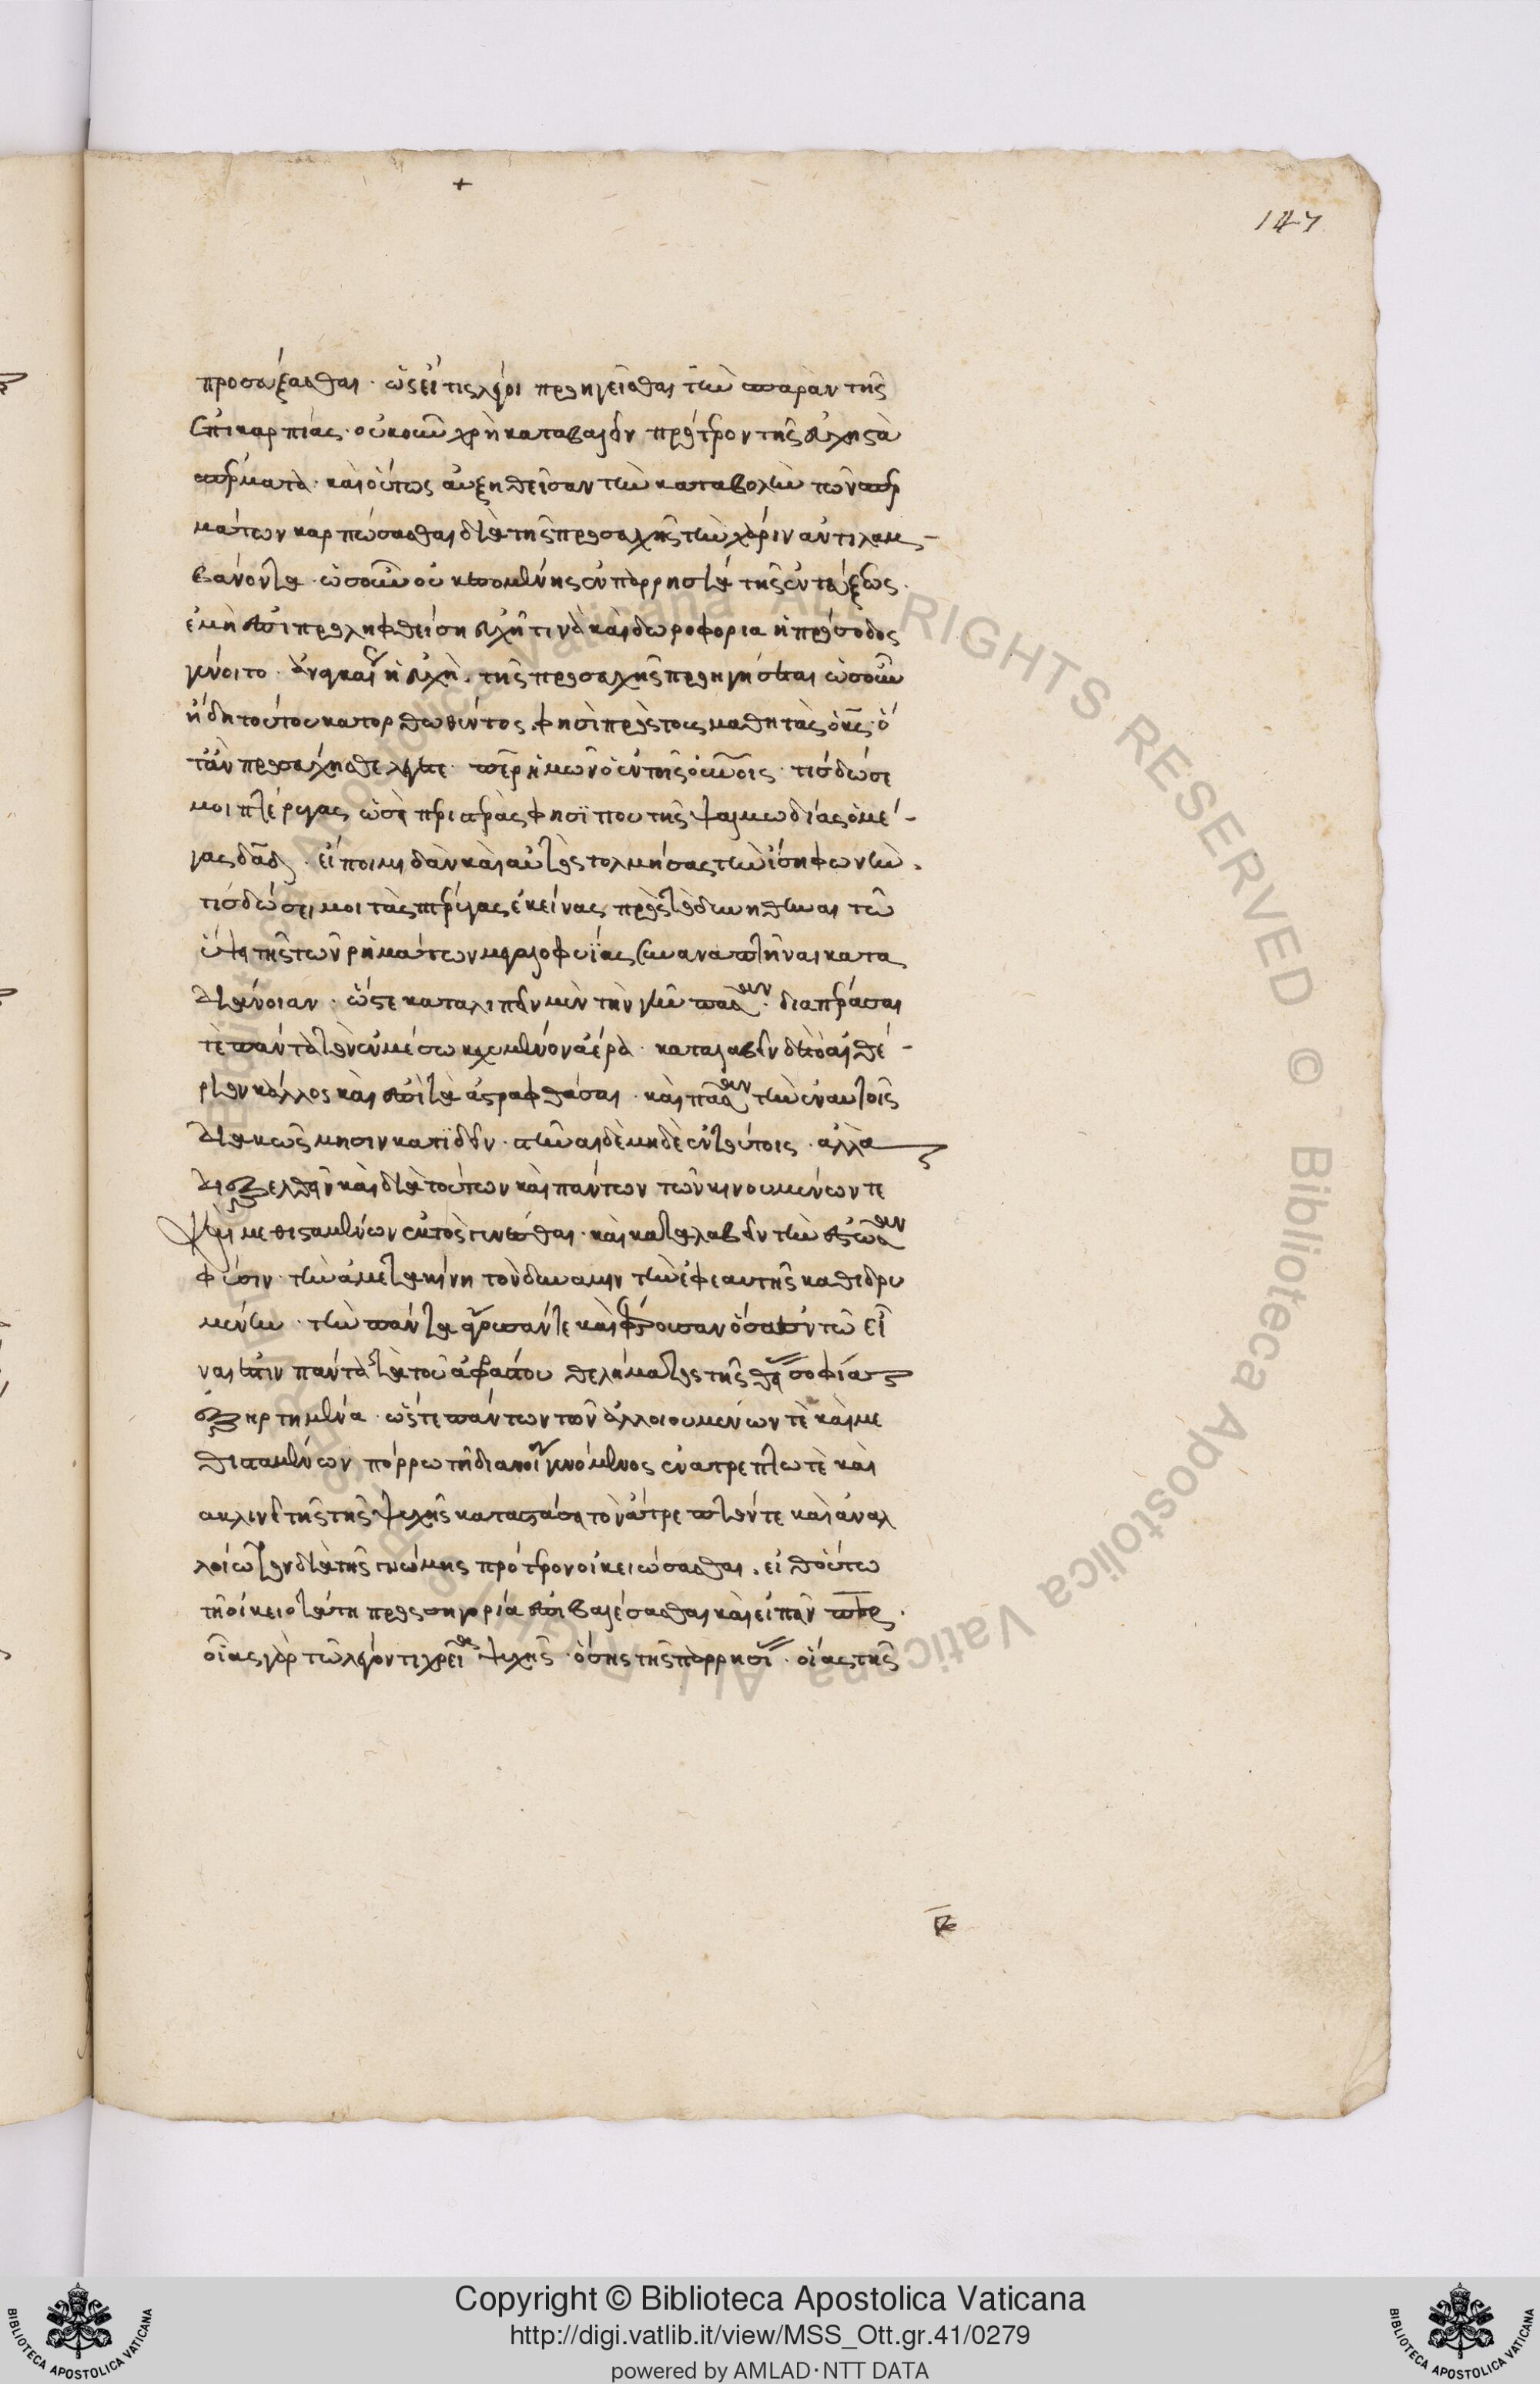 προσεύξασθαι · ὡς εἴ τις λέγοι προηγεῖσθαι τὴν σπορὰν τῆς
ἐπικαρπίας · οὐκοῦν χρὴ καταβαλεῖν πρότερον τῆς εὐχῆς τὰ
σπέρματα · καὶ οὕτως αὐξηθεῖσαν τὴν καταβολὴν τῶν σπερ
μάτων καρπώσασθαι διὰ τῆς προσευχῆς τὴν χάριν ἀντιλαμ-
βάνοντα · ὡς οὖν οὐκ ἐσομένης ἐν παρρησία τῆς ἐντεύξεως ·
εἰ μὴ ἐπὶ προληφθείση εὐχῆ τινὶ καὶ δωροφορία ἡ πρόσοδος
γένοιτο · ἀναγκαίως ἡ εὐχὴ · τῆς προσευχῆς προηγήσεται ὡς οὖν
ἤδη τούτου κατορθωθέντος, φησὶ πρὸς τοὺς μαθητὰς ὁ κς · ὅ
ταν προσεύχησθε λέγετε · πάτερ ἡμῶν ὁ ἐν τοῖς οὐνοῖς · τίς δώσει
μοι πτέρυγας ὡσεὶ περιστερᾶς φησί που τῆς ψαλμωδίας ὁ μέ-
γας δαδ · εἴποιμι δ' ἂν καὶ αὐτὸς τολμήσας τὴν ἴσην φωνὴν ·
τίς δώσει μοι τὰς πτέρυγας ἐκείνας πρὸς τὸ δυνηθῆναι τῶ
ὕψει τῆς τῶν ρημάτων μεγαλοφυΐας συναναπτῆναι κατὰ
διάνοιαν · ὥστε καταλιπεῖν μὲν τὴν γῆν πᾶσαν · διαπερᾶσαι
τὲ πάντα τὸν ἐν μέσω κεχυμένον ἀέρα · καταλαβεῖν δὲ τὸ αἰθέ-
ριον κάλλος καὶ ἐπὶ τὰ ἄστρα φθάσαι · καὶ πᾶσαν τὴν ἐν αὐτοῖς
διακόσμησιν κατιδεῖν · στῆναι δὲ μηδὲ ἐν τούτοις · ἀλλὰ
διεξελθεῖν καὶ διὰ τούτων καὶ πάντων τῶν κινουμένων τε
καὶ μεθισταμένων ἐκτὸς γενέσθαι · καὶ καταλαβεῖν τὴν ἑστῶσαν
φύσιν · τὴν ἀμετακίνητον δύναμιν τὴν ἐφ' ἑαυτῆς καθιδρυ
μένην · τὴν πάντα ἄγουσάν τε καὶ φέρουσαν ὅσα ἐν τῶ εἶ
ναι ἐστὶν πάντα τὰ τοῦ ἀφράστου θελήματος τῆς θείας σοφίας
ἐξηρτημένα · ὥστε πάντων τῶν ἀλλοιουμένων τὲ καὶ με
θισταμένων πόρρω τῆ διανοία γενόμενος ἐν ἀτρέπτω τὲ καὶ
ἀκλινεῖ τῆς τῆς ψυχῆς καταστάσει τὸν ἄτρεπτόν τε καὶ ἀναλ
λοίωτον διὰ τῆς γνώμης πρότερον οἰκειώσασθαι · εἶθ' οὕτω
τῆ οἰκειοτάτη προσηγορία ἐπικαλέσασθαι καὶ εἰπεῖν περ ·
οἵας γὰρ τῶ λέγοντι χρεία ψυχῆς · ὅσης τῆς παρρησίας · οἵας τῆς
147